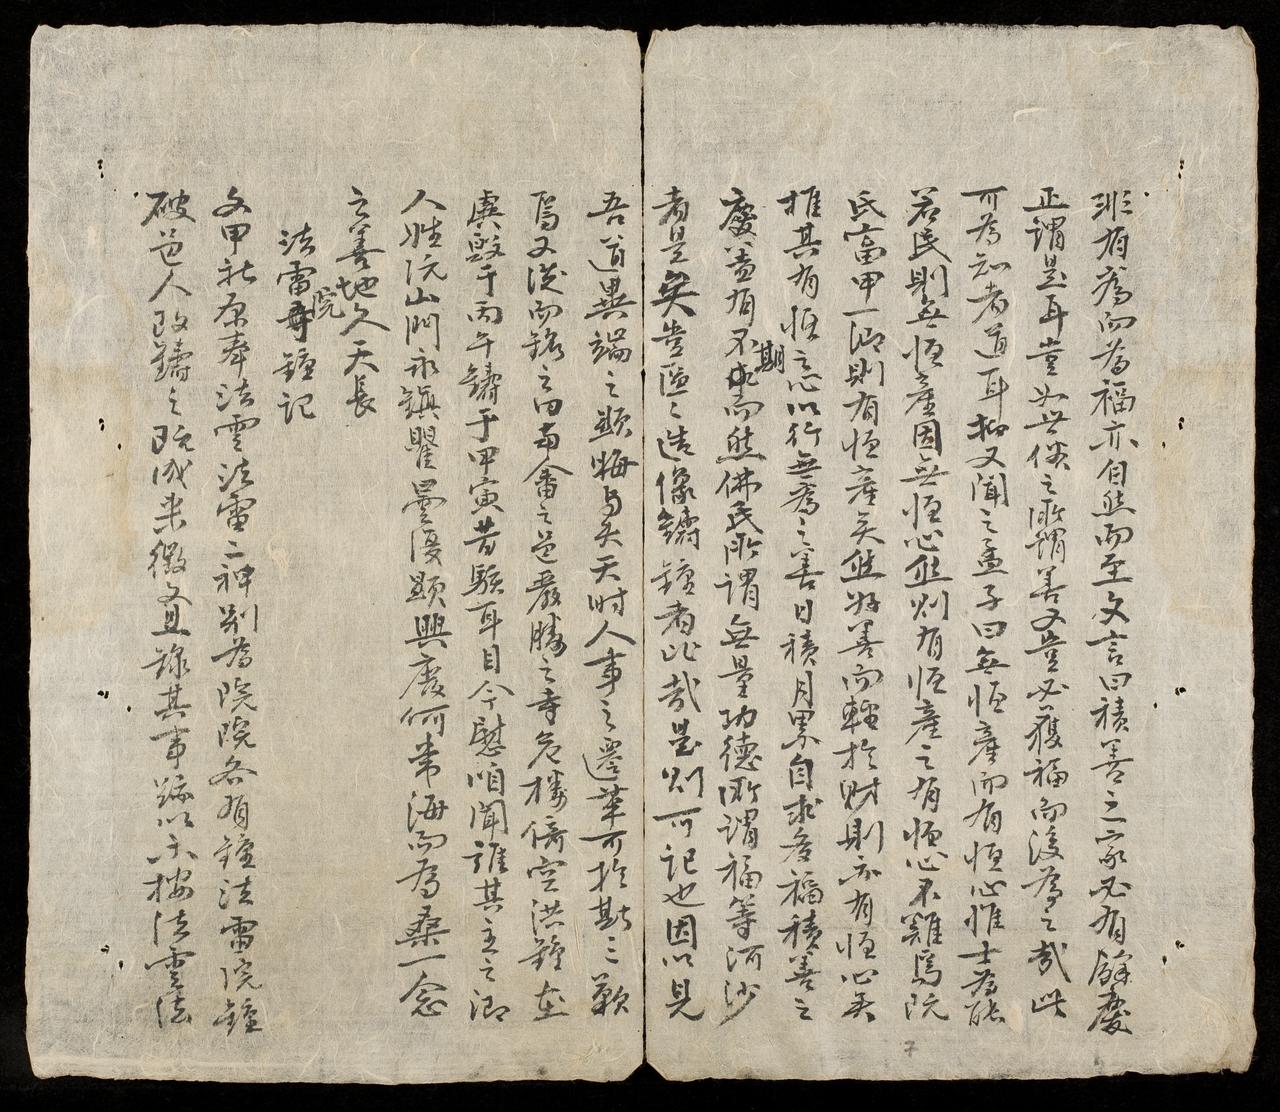 非有為而為福亦自然而至文言曰積善之家必有餘慶
正謂是耳豈如世俗之所謂善又豈必獲福而後為之哉此
可為知者道耳抑又聞之孟子曰無恒產而有恒心惟士為能
若民則無恒產因無恒心然則有恒產之有恒心不難焉阮
氏富甲一鄉則有恒產矣然好善而輕於財則亦有恒心矣
推其有恒之心以行無為之善日積月累自求多福積善之
慶蓋有不期而然佛氏所謂無量功德所謂福等河沙
者是矣豈區〻造像鑄鐘者比哉是則可記也因以見
吾道異端之顯晦與夫天時人事之遷革可於斯三歎
焉又從而銘之曰南畬之邑嚴勝之寺危樓倚空洪鐘在
虡毀于丙午鑄于甲寅昔駭耳目今慰咱聞誰其主之鄉
人姓阮山門永鎮瞿曇復顯興廢何常海而為桑一念
之善地久天長
法雷寺院鐘記
文甲社原奉法雲法雷二神別為院院各有鐘法雷院鐘
破邑人改鑄之既成來徵文且錄其事跡以示按法雲法